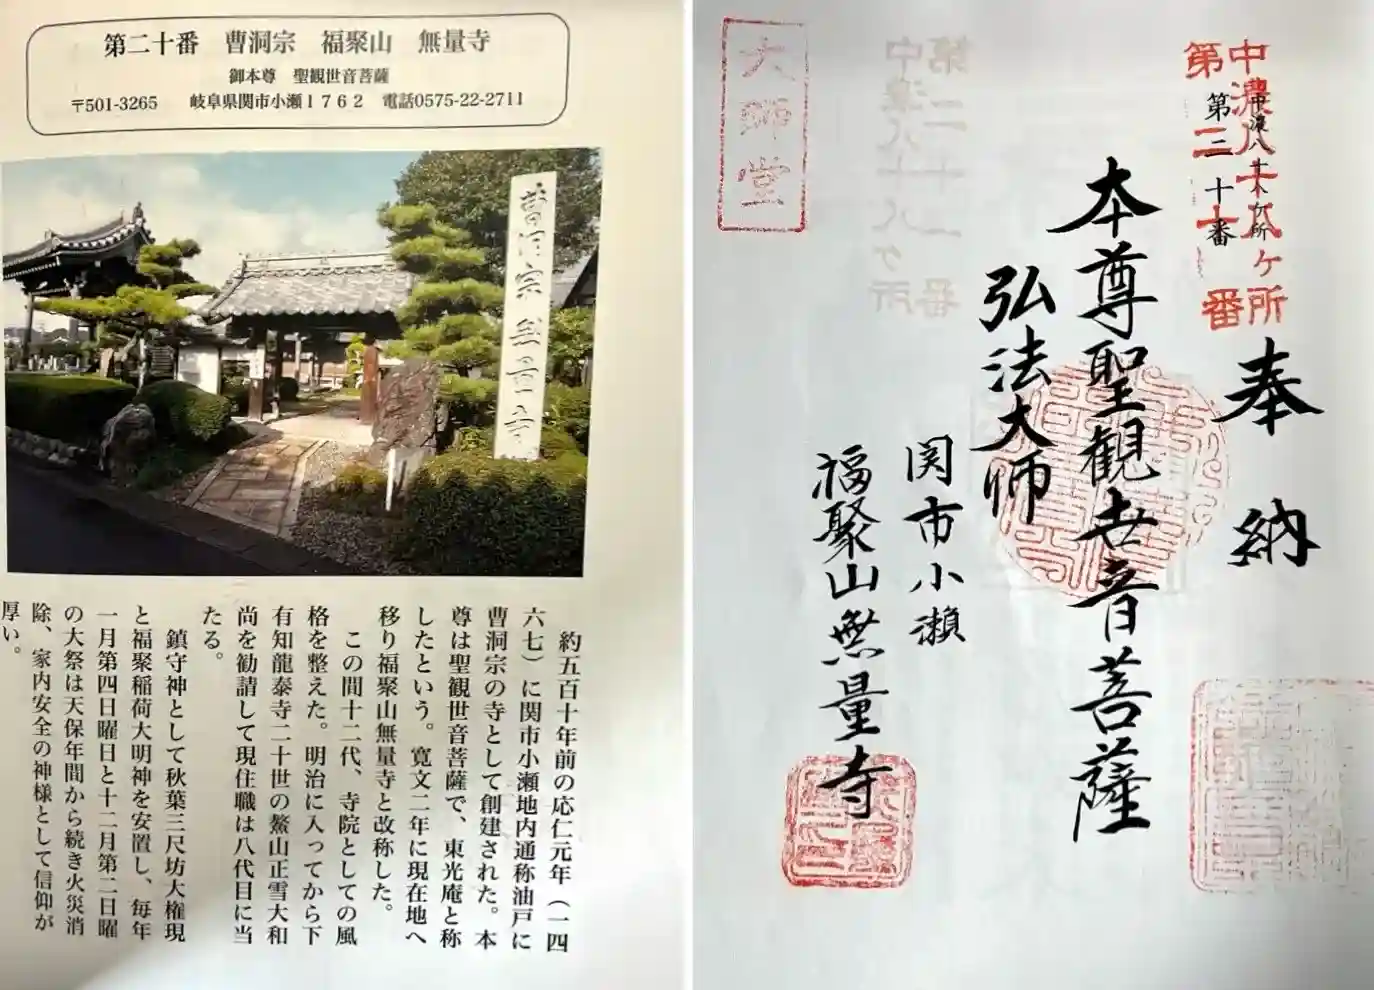 第二十番　曹洞宗　福聚山　無量寺
御本尊　聖観世音菩薩
〒501-3265　岐阜県関市小瀬１７６２　電話0575-22-2711
曹洞宗無量寺
約五百十年前の応仁元年（一四
六七）に関市小瀬地内通称油戸に
曹洞宗の寺として創建された。本
尊は聖観世音菩薩で、東光庵と称
したという。寛文二年に現在地へ
移り福聚山無量寺と改称した。
この間十二代、寺院としての風
格を整えた。明治に入ってから下
有知龍泰寺二十世の鰲山正雪大和
尚を勧請して現住職は八代目に当
たる。
鎮守神として秋葉三尺坊大権現
と福聚稲荷大明神を安置し、毎年
一月第四日曜日と十二月第二日曜
の大祭は天保年間から続き火災消
除、家内安全の神様として信仰が
厚い。
中濃八十八ヶ所
第二十番
中濃八十八ヶ所
第二十番
奉納
本尊聖観世音菩薩
弘法大师
関市小瀬
福聚山無量寺
大師堂